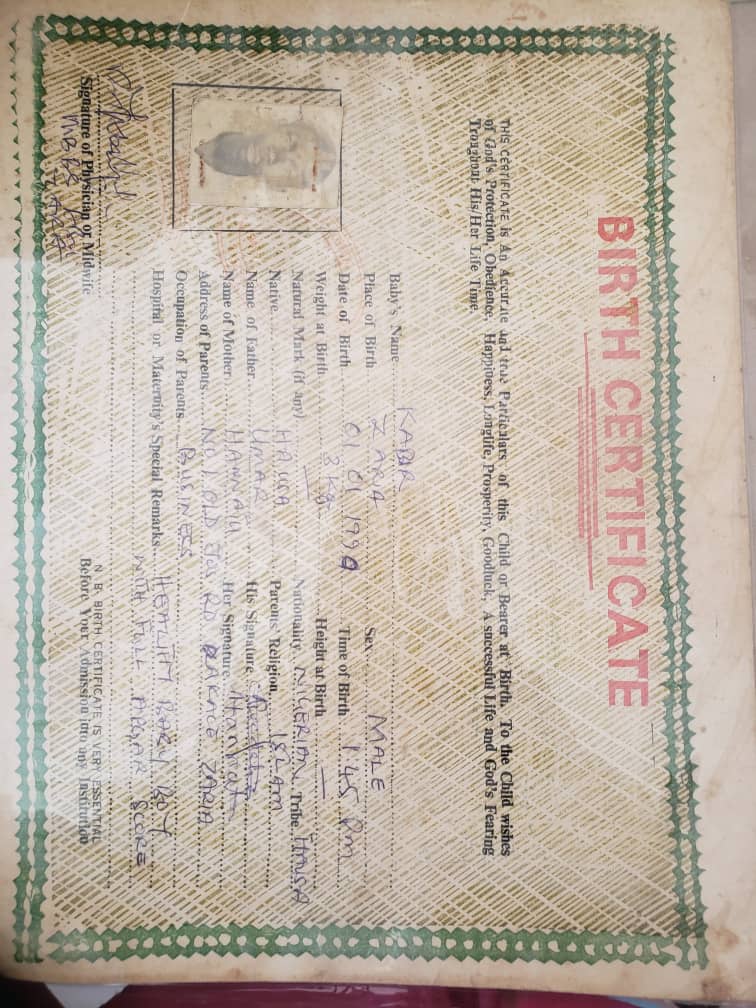 BIRTH CERTIFICATE
THIS CERTIFICATE is An Accurate and true Particulars of this Child or Bearer at Birth. To the Child wishes
of God's Protection, Obedience, Happiness, Longlife, Prosperity, Goodluck, A successful Life and God's Fearing
Troughout His/Her Life Time.
Baby's Name KABIR
Place of Birth ZARIA Sex MALE
Date of Birth 01 01 1990 Time of Birth 145 pm
Weight at Birth 3 kg Height at Birth —
Natural Mark (if any) — Nationality NIGERIAN Tribe HAUSA
Native HAUSA Parents Religion ISLAM
Name of Father UMAR His Signature
Name of Mother HAUWAU Her Signature
Address of Parents NO 1 OLD JOS RD ZARIA
Occupation of Parents BUSINESS
Hospital or Maternity's Special Remarks HEALTHY BABY BOY
WITH FULL APGAR SCORE
Signature of Physician or Midwife
MBBS
ZARIA
N. B. BIRTH CERTIFICATE IS VERY ESSENTIAL
Before Your Admission into any Institution